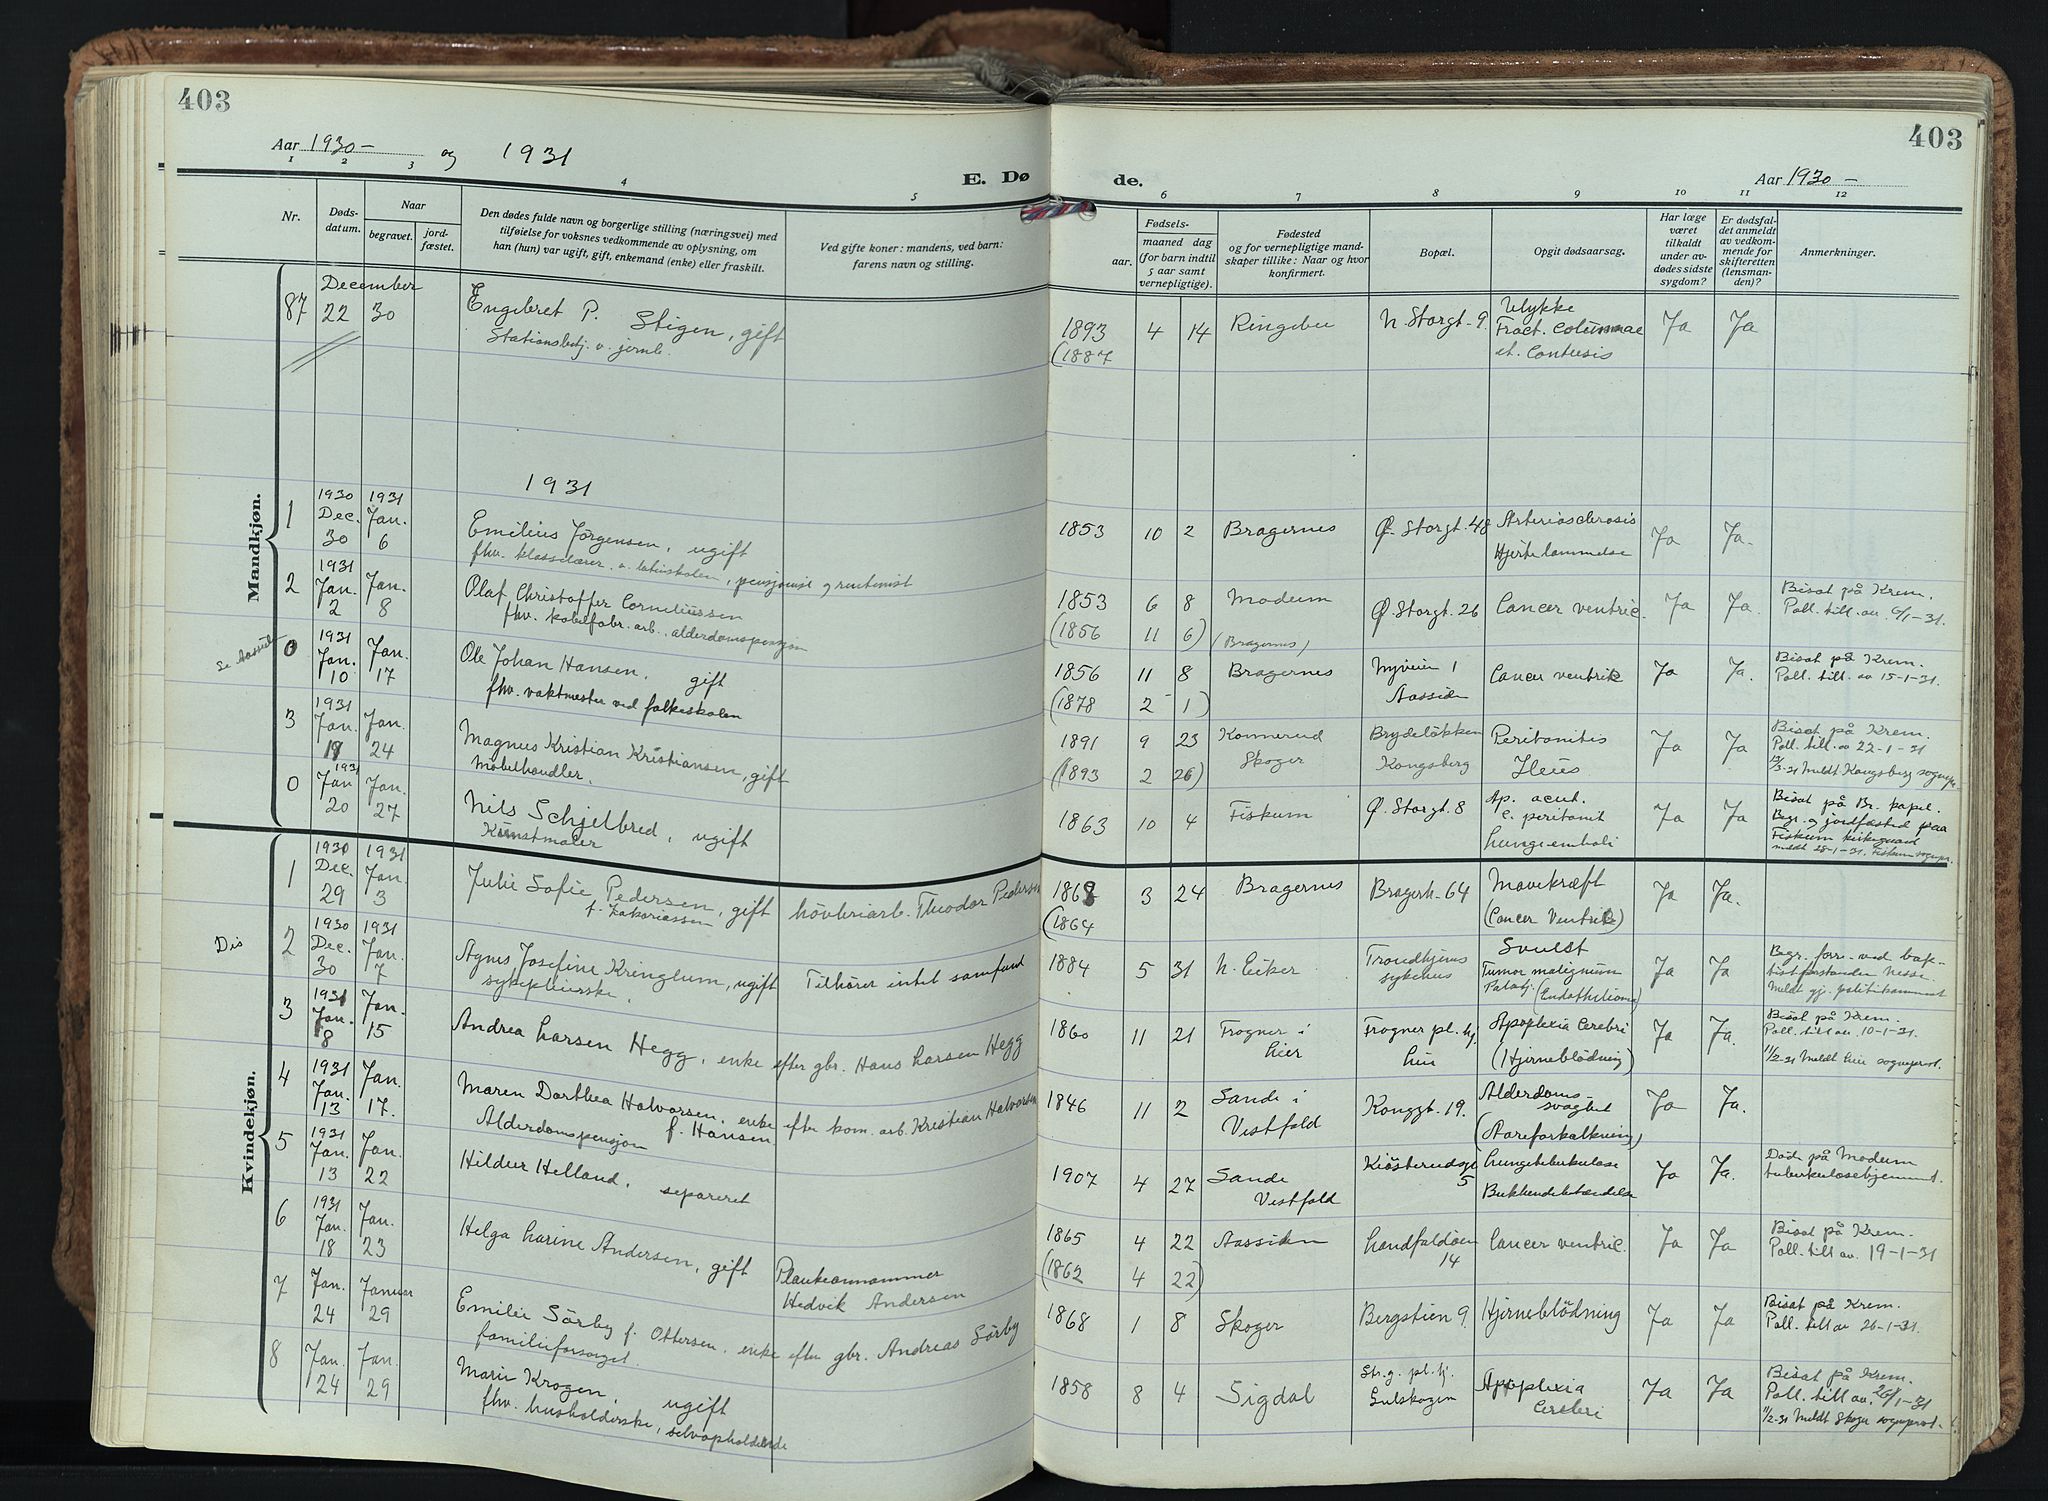 403
403
Aar 1930 – og 1931
E. Dø
de.
Aar 1930 –
1 2 3 4 5 6 7 8 9 10 11 12
Nr.
Døds-
datum.
Naar
begravet.
jord-
fæstet.
Den dødes fulde navn og borgerlige stilling (næringsvei) med
tilføielse for voksnes vedkommende av oplysning, om
han (hun) var ugift, gift, enkemand (enke) eller fraskilt.
Ved gifte koner: mandens, ved barn:
farens navn og stilling.
Fødsels-
aar.
maaned dag
(for barn indtil
5 aar samt
vernepligtige).
Fødested
og for vernepligtige mand-
skaper tillike: Naar og hvor
konfirmert.
Bopæl.
Opgit dødsaarsag.
Har læge
været
tilkaldt
under av-
dødes sidste
sygdom?
Er dødsfal-
det anmeldt
av vedkom-
mende for
skifteretten
(lensman-
den)?
Anmerkninger.
Mandkjøn.
December
87 22 30 Engebret P. Stigen, gift
Stationsbetj. v. jernb.
1893 4 14 Ringebu N. Storgt. 9. Ulykke
Fract. Columnae
et. Contusis
Ja Ja
(1887
1931
1 1930 Dec. 30 1931 Jan. 6 Emilius Jörgensen, ugift
fhv. klasselærer v. latinskolen, pensjonist og rentenist
1853 10 2 Bragernes Ø. Storgt. 48 Arteriosclerosis
Hjertelammelse
Ja Ja.
2 1931 Jan. 2 Jan. 8 Olaf Christoffer Corneliussen
fhv. kabelfabr. arb., alderdomspensjon
1853 6 8 Modum Ø. Storgt. 26 Cancer ventric. Ja Ja.
Bisat på Krem.
Poll. till. av. 6/1-31.
(1856 11 6) (Bragernes)
0 1931 Jan. 10 Jan. 17 Ole Johan Hansen, gift
fhv. vaktmester ved folkeskolen
1856 11 8 Bragernes Nyveien 1
Aassiden
Cancer ventrik Ja Ja.
Bisat på Krem.
Poll. till. av 15-1-31.
(1878 2 1)
3 1931 Jan. 19 Jan. 24 Magnus Kristian Kristiansen, gift
Möbelhandler.
1891 9 23 Konnerud
Skoger
Brydelökken
Kongsberg
Peritonitis
Ileus
Ja Ja
Bisat på Krem.
Poll. till. av 22-1-31
13/3-31 Meldt Kongsberg sognepr.
(1893 2 26)
0 1931 Jan 20 Jan. 27 Nils Schjelbred, ugift
Kunstmaler
1863 10 4 Fiskum Ø. Storgt. 8 Ap. acut.
c. peritonit
Lungeemboli
Ja Ja
Bisat på Br. kapel.
Begr. og jordfæsted paa
Fiskum kirkegaard
meldt 28-1-31. Fiskum sognepr.
Kvindekjøn.
1 1930 Dec. 29 1931 Jan. 3 Julie Sofie Pedersen, gift
f. Zakariassen
hövleriarb. Theodor Pedersen
1868 3 24 Bragernes Bragerh. 64 Mavekræft
(Cancer Ventrik)
Ja Ja.
(1864
Dis
2 1930 Dec. 30 1931 Jan. 7 Agnes Josefine Kringlum, ugift
sykepleierske.
Tilhører intet samfund
1884 5 31 N. Eiker Trondhjems
sykehus
Svulst
Tumor malignum
(Endotheliom)
Ja Ja
Begr. forr. ved bap-
tistforstander Nesse
Meldt gj. politikammeret
3 1931 Jan. 8 Jan. 15 Andrea Larsen Hegg, enke efter gbr. Hans Larsen Hegg
1860 11 21 Frogner i
Lier
Frogner pl. hj.
Lier
Apoplexia Cerebri
(Hjerneblödning)
Ja Ja.
Bisat på Krem.
Poll. till av. 10-1-31.
11/2-31 Meldt Lier sogneprest.
4 1931 Jan. 13 Jan. 17. Maren Dorthea Halvorsen, enke efter kom. arb. Kristian Halvorsen
f. Hansen
Alderdomspensjon
1846 11 2 Sande i
Vestfold
Konggt. 19. Alderdoms-
svaghet
(Aareforkalkning)
Ja Ja.
5 1931 Jan. 13 Jan. 22 Hildur Helland, separeret
1907 4 27 Sande
Vestfold
Kiösterudsgt
5
Lungetuberkulose
Bukhindebetændelse
Ja Ja.
Döde på Modum
tuberkulosehjemmet.
6 1931 Jan. 18 Jan. 23 Helga Larine Andersen, gift
Plankeannammer
Hedvik Andersen
1865 4 22 Aassiden Landfaldöen
14
Cancer ventric. Ja Ja
Bisat på Krem.
Poll. till av. 19-1-31
(1862 4 22)
7 Jan. 24 Januar 29 Emilie Sörby f. Ottersen, enke efter gbr. Andreas Sörby
familieforsorget.
1868 1 8 Skoger Bergstien 9. Hjerneblödning Ja Ja
Bisat på Krem.
Poll. till av 26-1-31.
8 Jan. 24 Jan. 29 Marie Krogen, ugift
fhv. husholderske, selvopholdende
1858 8 4 Sigdal Str. g. pl. hj.
Gulskogen
Apoplexia
Cerebri
Ja Ja
Bisat på Krem.
Poll. till av. 26/1-31
11/2-31 Meldt Skoger sogneprest.